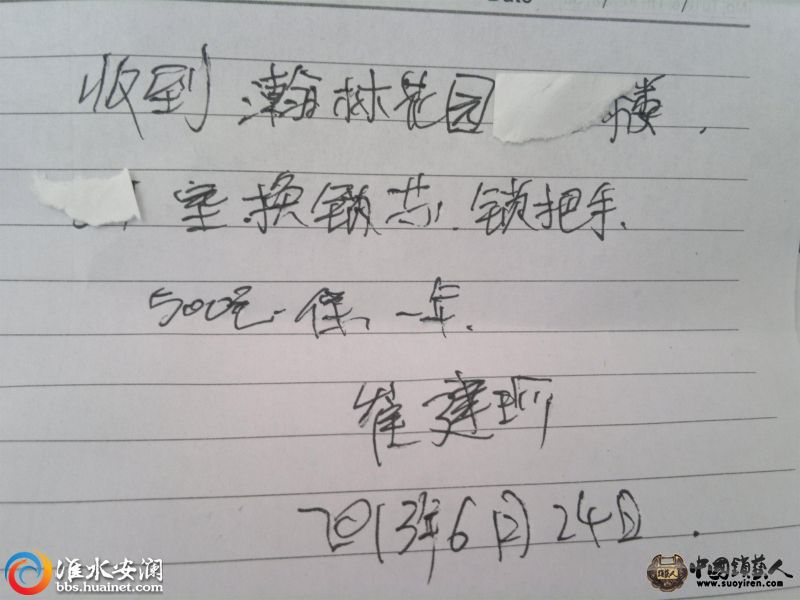 Date
收到瀚林花园 楼.
室换锁芯.锁把手.
500元.保一年.
崔建
2013年6月24日.
淮水安澜
bbs.huainet.com
中國鎖藝人
www.suoyiren.com